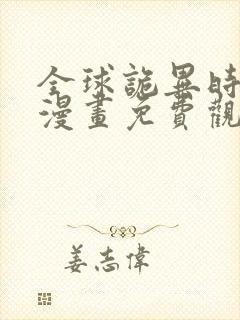 全球詭異時
漫畫免費觀
姜志偉